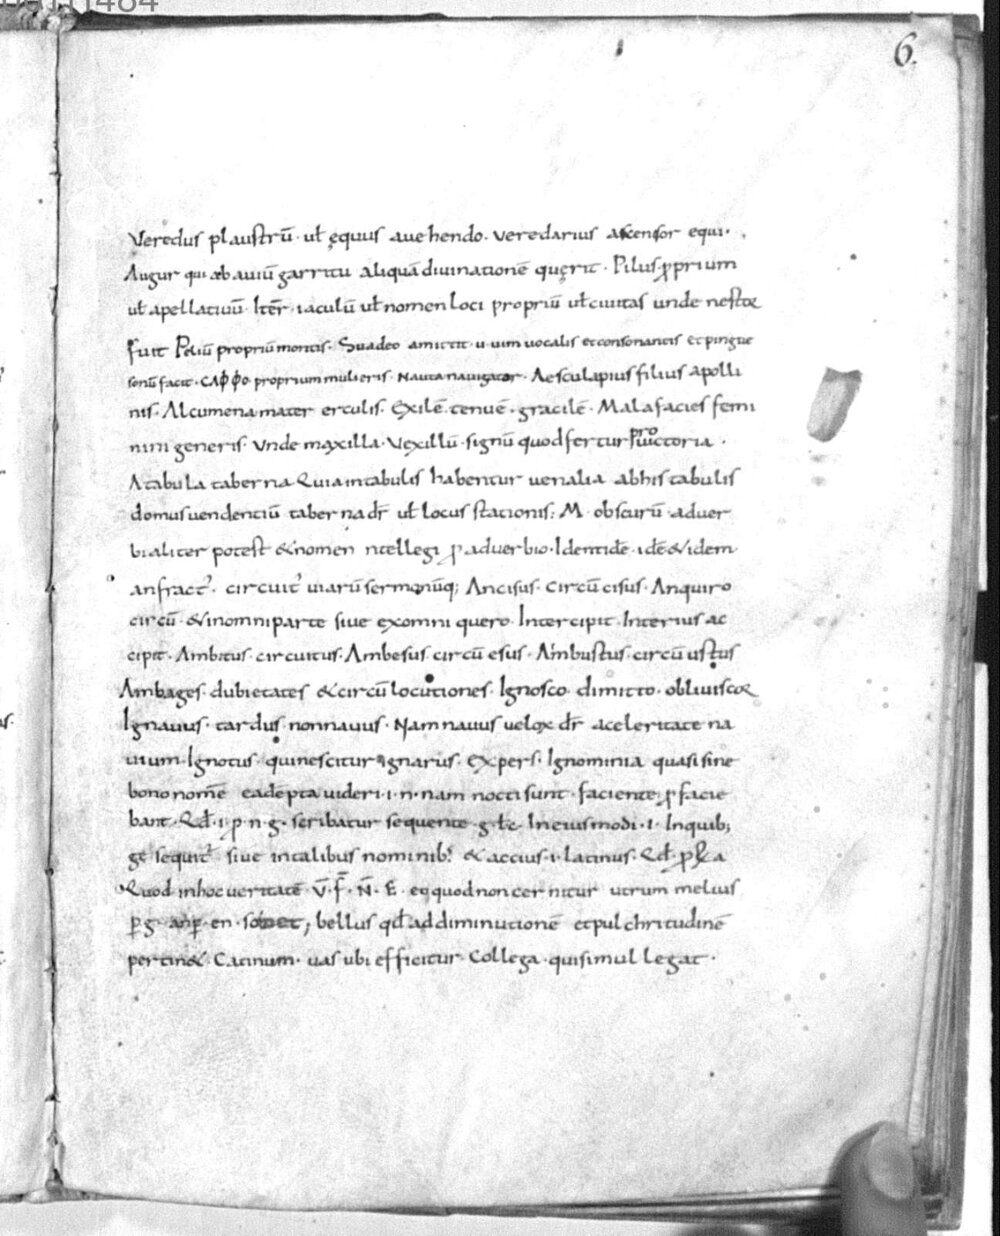 6.
Veredus plaustrū · ul̄ ęquus auehendo · veredarius ascensor equi ·
Augur qui ab auiū garritu aliquā diuinationē quęrit · Pilus ꝓprium
ul̄ apellatiuū · Iter̄ · iaculū ul̄ nomen loci propriū ul̄ ciuitas unde nestor
fuit Peliū propriū montis · Suadeo amittit · u · uim uocalis et consonantis et pingue
sonū facit · CAΦΦO proprium mulieris · Nauta nauigator · Aesculapius filius apolli
nis · Alcumena mater erculis · Exilē · tenuē · gracilē · Mala facies femi
nini generis · Vnde maxilla · Vexillū · signū quod fertur uictoria ·
A tabula taberna Quia in tabulis habentur uenalia ab his tabulis
domus uendentiū taberna dr̄ ul̄ locus stationis : M · obscurū · aduer
bialiter potest & nomen ntellegi ꝓ aduerbio · Identidē · idē & idem
anfract᾽ · circuit᾽ uiarū sermonūq; Ancisus · circū cisus · Anquiro
circū · & in omni parte siue ex omni quero · Intercipit · Interius ac
cipit · Ambitus · circuitus · Ambesus · circū esus · Ambustus · circū ustus
Ambages · dubietates & circū locutiones · Ignosco · dimitto · obliuiscor
Ignauus · tardus · non nauus · Nam nauus uelox dr̄ a celeritate na
uium · Ignotus · qui nescitur ignarus · Expers · Ignominia quasi sine
bono nomē eadē pta uideri · i · n · nam nocti sunt · faciente ꝓ facie
bant · Qd̄ · i · p · n · g · scribatur sequente · g · In eiusmodi · i · Inquib;
ge sequit᾽ siue in talibus nominib; & accius · i · latinus · Qd̄
Quod in hoc ueritatē · V̄ · F̄ · N̄ · E · eq quod non cernitur utrum melius
ꝑ g · an ꝑ · en · ; bellus qd̄ ad diminutionē et pulchritudinē
pertin& · Catinum · uas ubi efficitur · Collega · qui simul legat ·